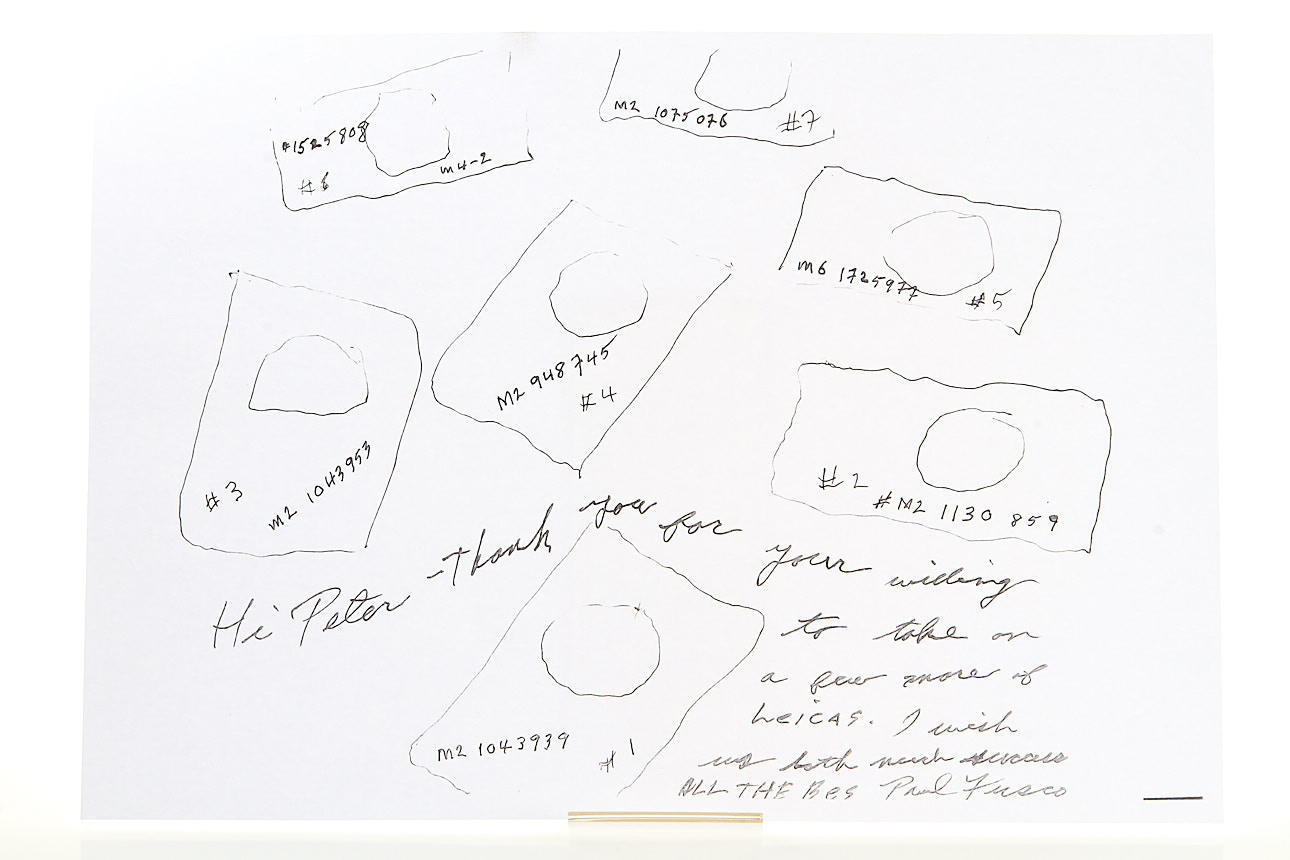 #1525808
m4-2
#6
M2 1075076 #7
M6 1725977 #5
M2 948745
#4
#3
m2 1043953
#2
#M2 1130 859
Hi Peter - Thank you for your willing
to take on
a few more of
LeicAs. I wish
us both much success
M2 1043939 #1
ALL THE Bes Paul Fusco